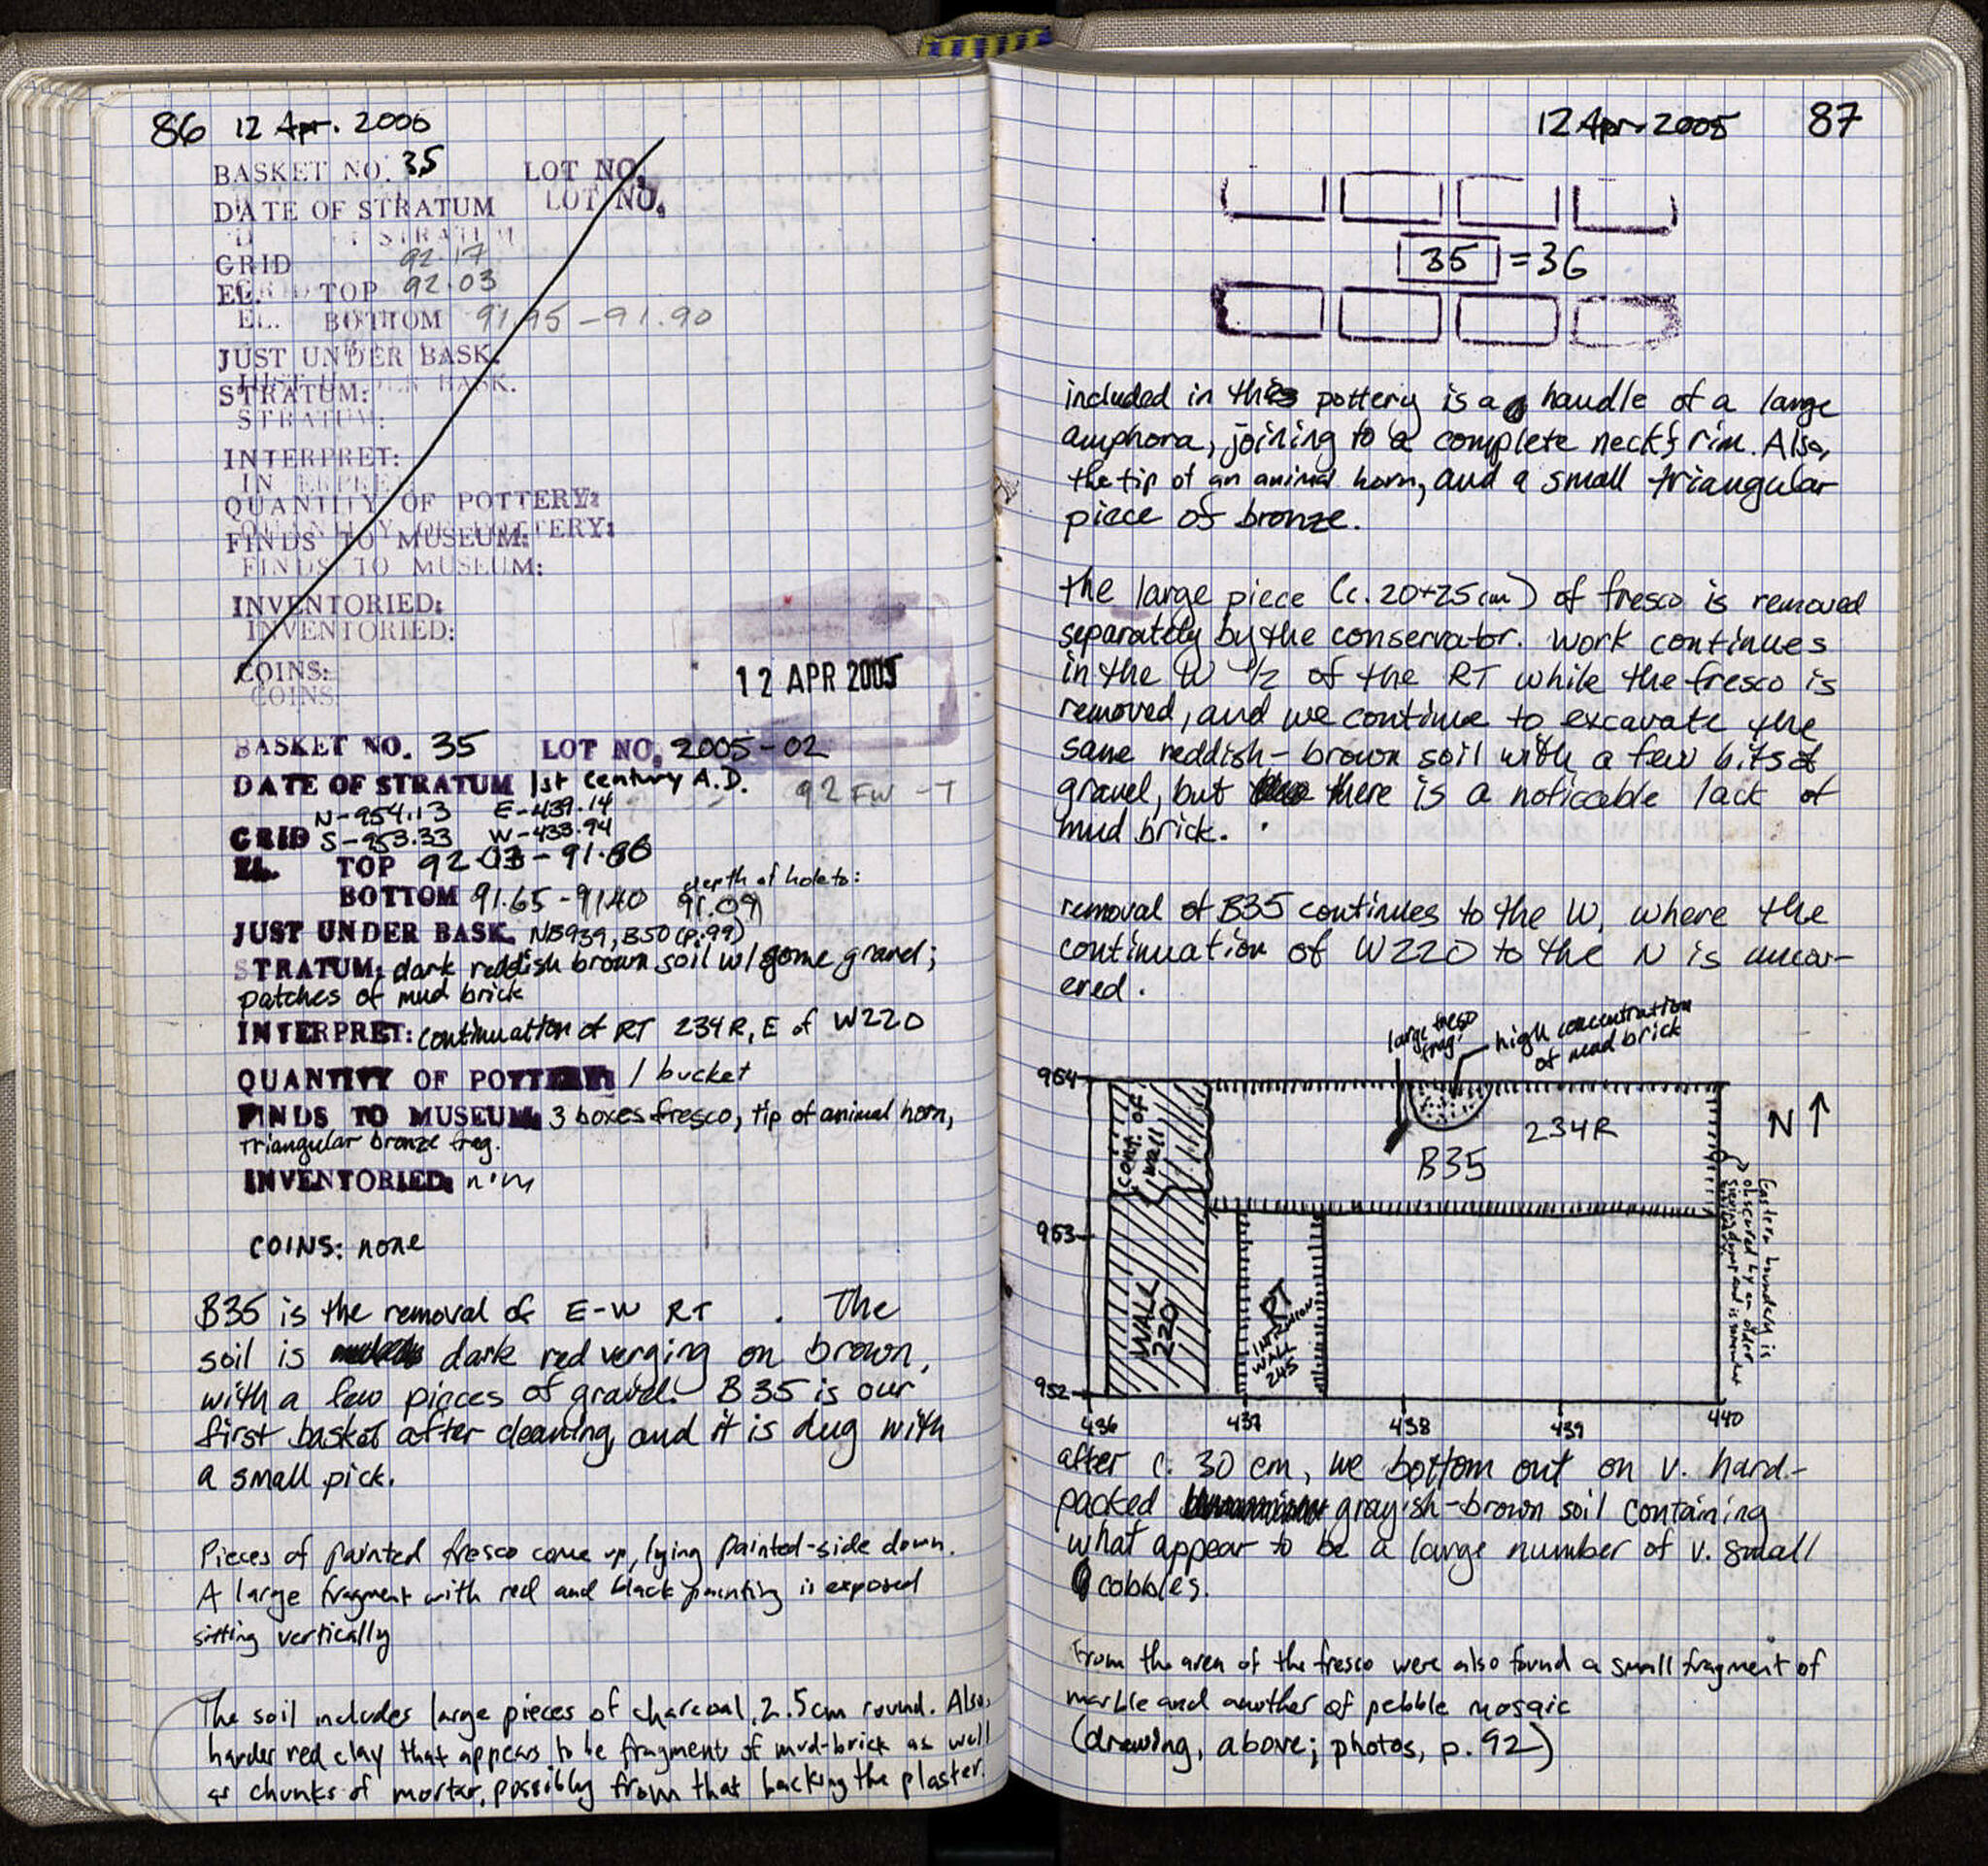 86 12 Apr. 2005
BASKET NO. 35 LOT NO.
LOT NO.
DATE OF STRATUM
STRATUM
GRID 92.17
EL. TOP 92.03
EL. BOTTOM 91.95-91.90
JUST UNDER BASK.
BASK.
STRATUM:
STRATUM:
INTERPRET:
QUANTITY OF POTTERY:
QUANTITY OF POTTERY:
FINDS TO MUSEUM:
FINDS TO MUSEUM:
INVENTORIED:
INVENTORIED:
COINS:
COINS:
12 APR 2005
BASKET NO. 35 LOT NO. 2005-02
DATE OF STRATUM 1st century A.D.
N-954.13 E-439.14
GRID S-953.33 W-433.94
EL. TOP 92.03-91.86
depth of hole to:
BOTTOM 91.65-91.40 91.09
JUST UNDER BASK. NB939, B50 (p.99)
STRATUM: dark reddish brown soil w/ some gravel;
patches of mud brick
INTERPRET: continuation of RT 234R, E of W220
QUANTITY OF POTTERY: 1 bucket
FINDS TO MUSEUM: 3 boxes fresco, tip of animal horn,
triangular bronze frag.
INVENTORIED:
COINS: none
B35 is the removal of E-W RT . The
soil is dark red verging on brown,
with a few pieces of gravel. B35 is our
first basket after cleaning, and it is dug with
a small pick.
Pieces of painted fresco come up, lying painted-side down.
A large fragment with red and black painting is exposed
sitting vertically
The soil includes large pieces of charcoal, 2.5cm round. Also,
harder red clay that appears to be fragments of mud-brick as well
as chunks of mortar, possibly from that backing the plaster.
12 Apr. 2005 87
35 =36
included in this pottery is a handle of a large
amphora, joining to a complete neck & rim. Also,
the tip of an animal horn, and a small triangular
piece of bronze.
the large piece (c. 20+25cm) of fresco is removed
separately by the conservator. Work continues
in the W 1/2 of the RT while the fresco is
removed, and we continue to excavate the
same reddish-brown soil with a few bits of
gravel, but there is a noticable lack of
mud brick.
removal of B35 continues to the W, where the
continuation of W220 to the N is uncov-
ered.
large fresco
frag.
high concentration
of mud brick
954
cont. of
wall
234R
N
B35
953
Eastern boundary is
obscured by an older
WALL
220
RT
WALL
245
952
436 437 438 439 440
after c. 30 cm, we bottom out on v. hard-
packed grayish-brown soil containing
what appear to be a large number of v. small
cobbles.
From the area of the fresco were also found a small fragment of
marble and another of pebble mosaic
(drawing, above; photos, p.92)